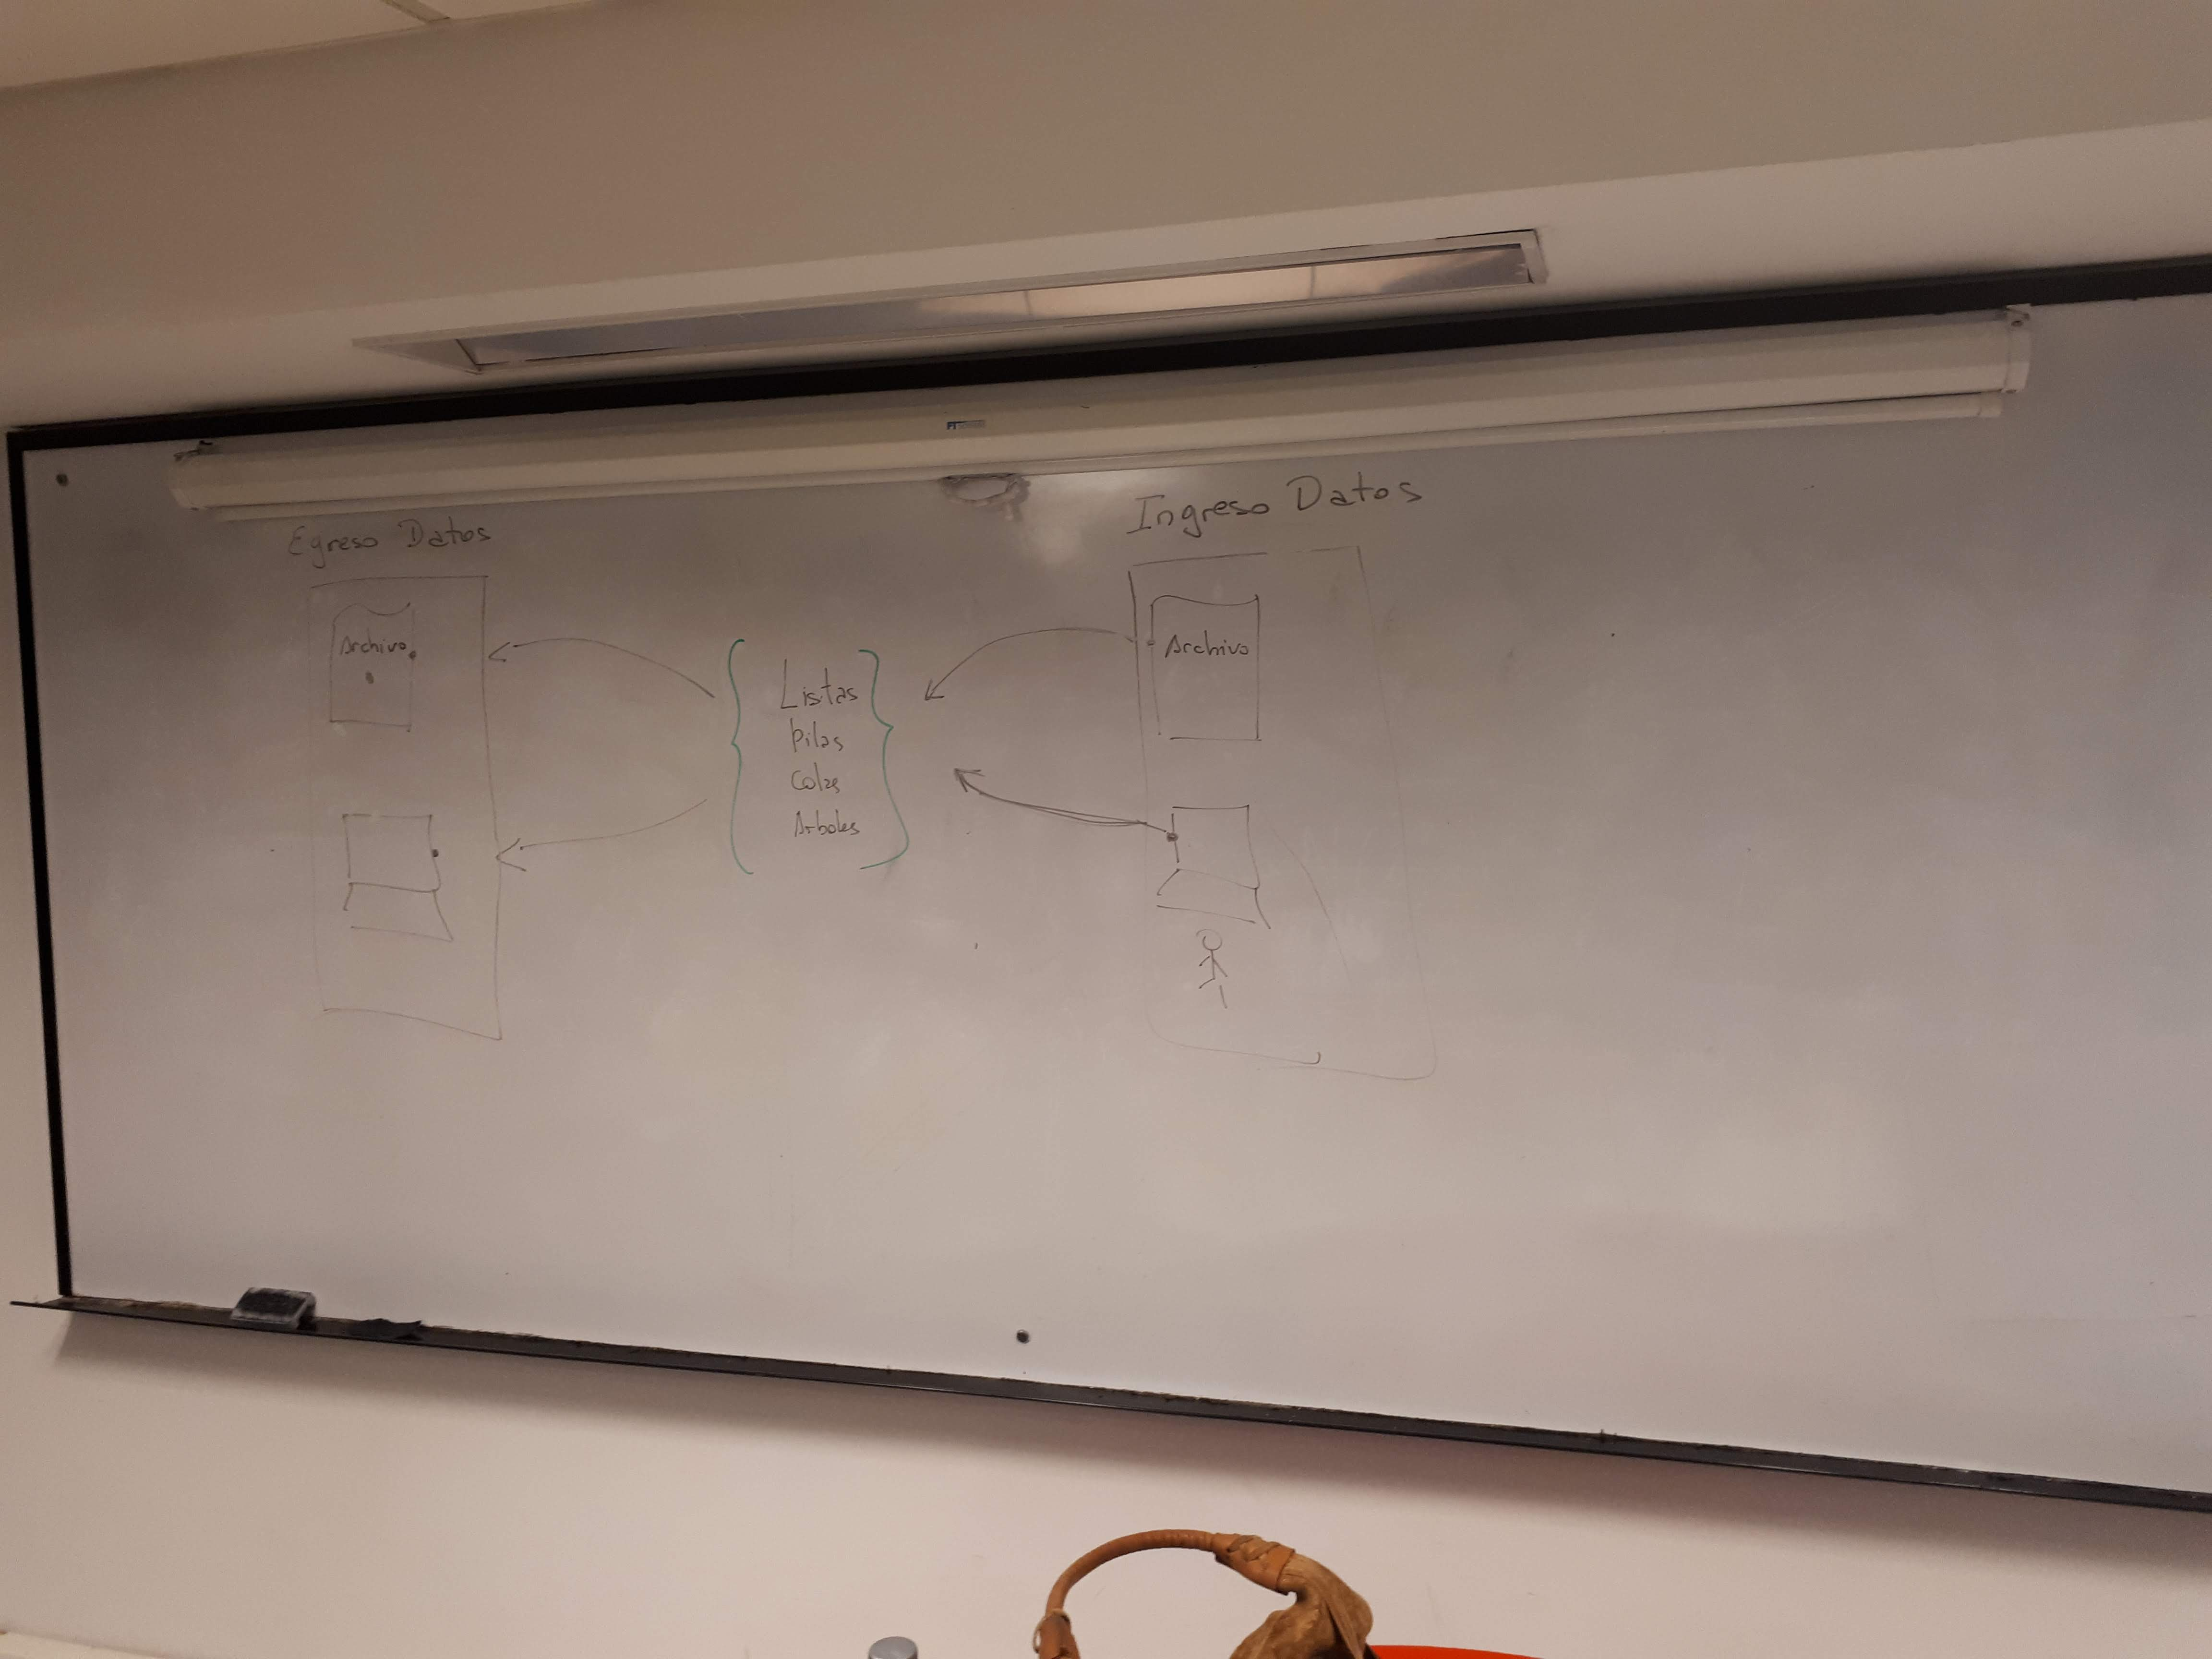 Egreso Datos
Archivo
Listas
Pilas
Colas
Arboles
Ingreso Datos
Archivo